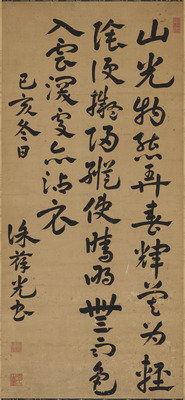 山光物態弄春輝莫为輕
陰便擬歸縱使晴明無雨色
入雲深處亦沾衣
己亥冬日
徐葆光書